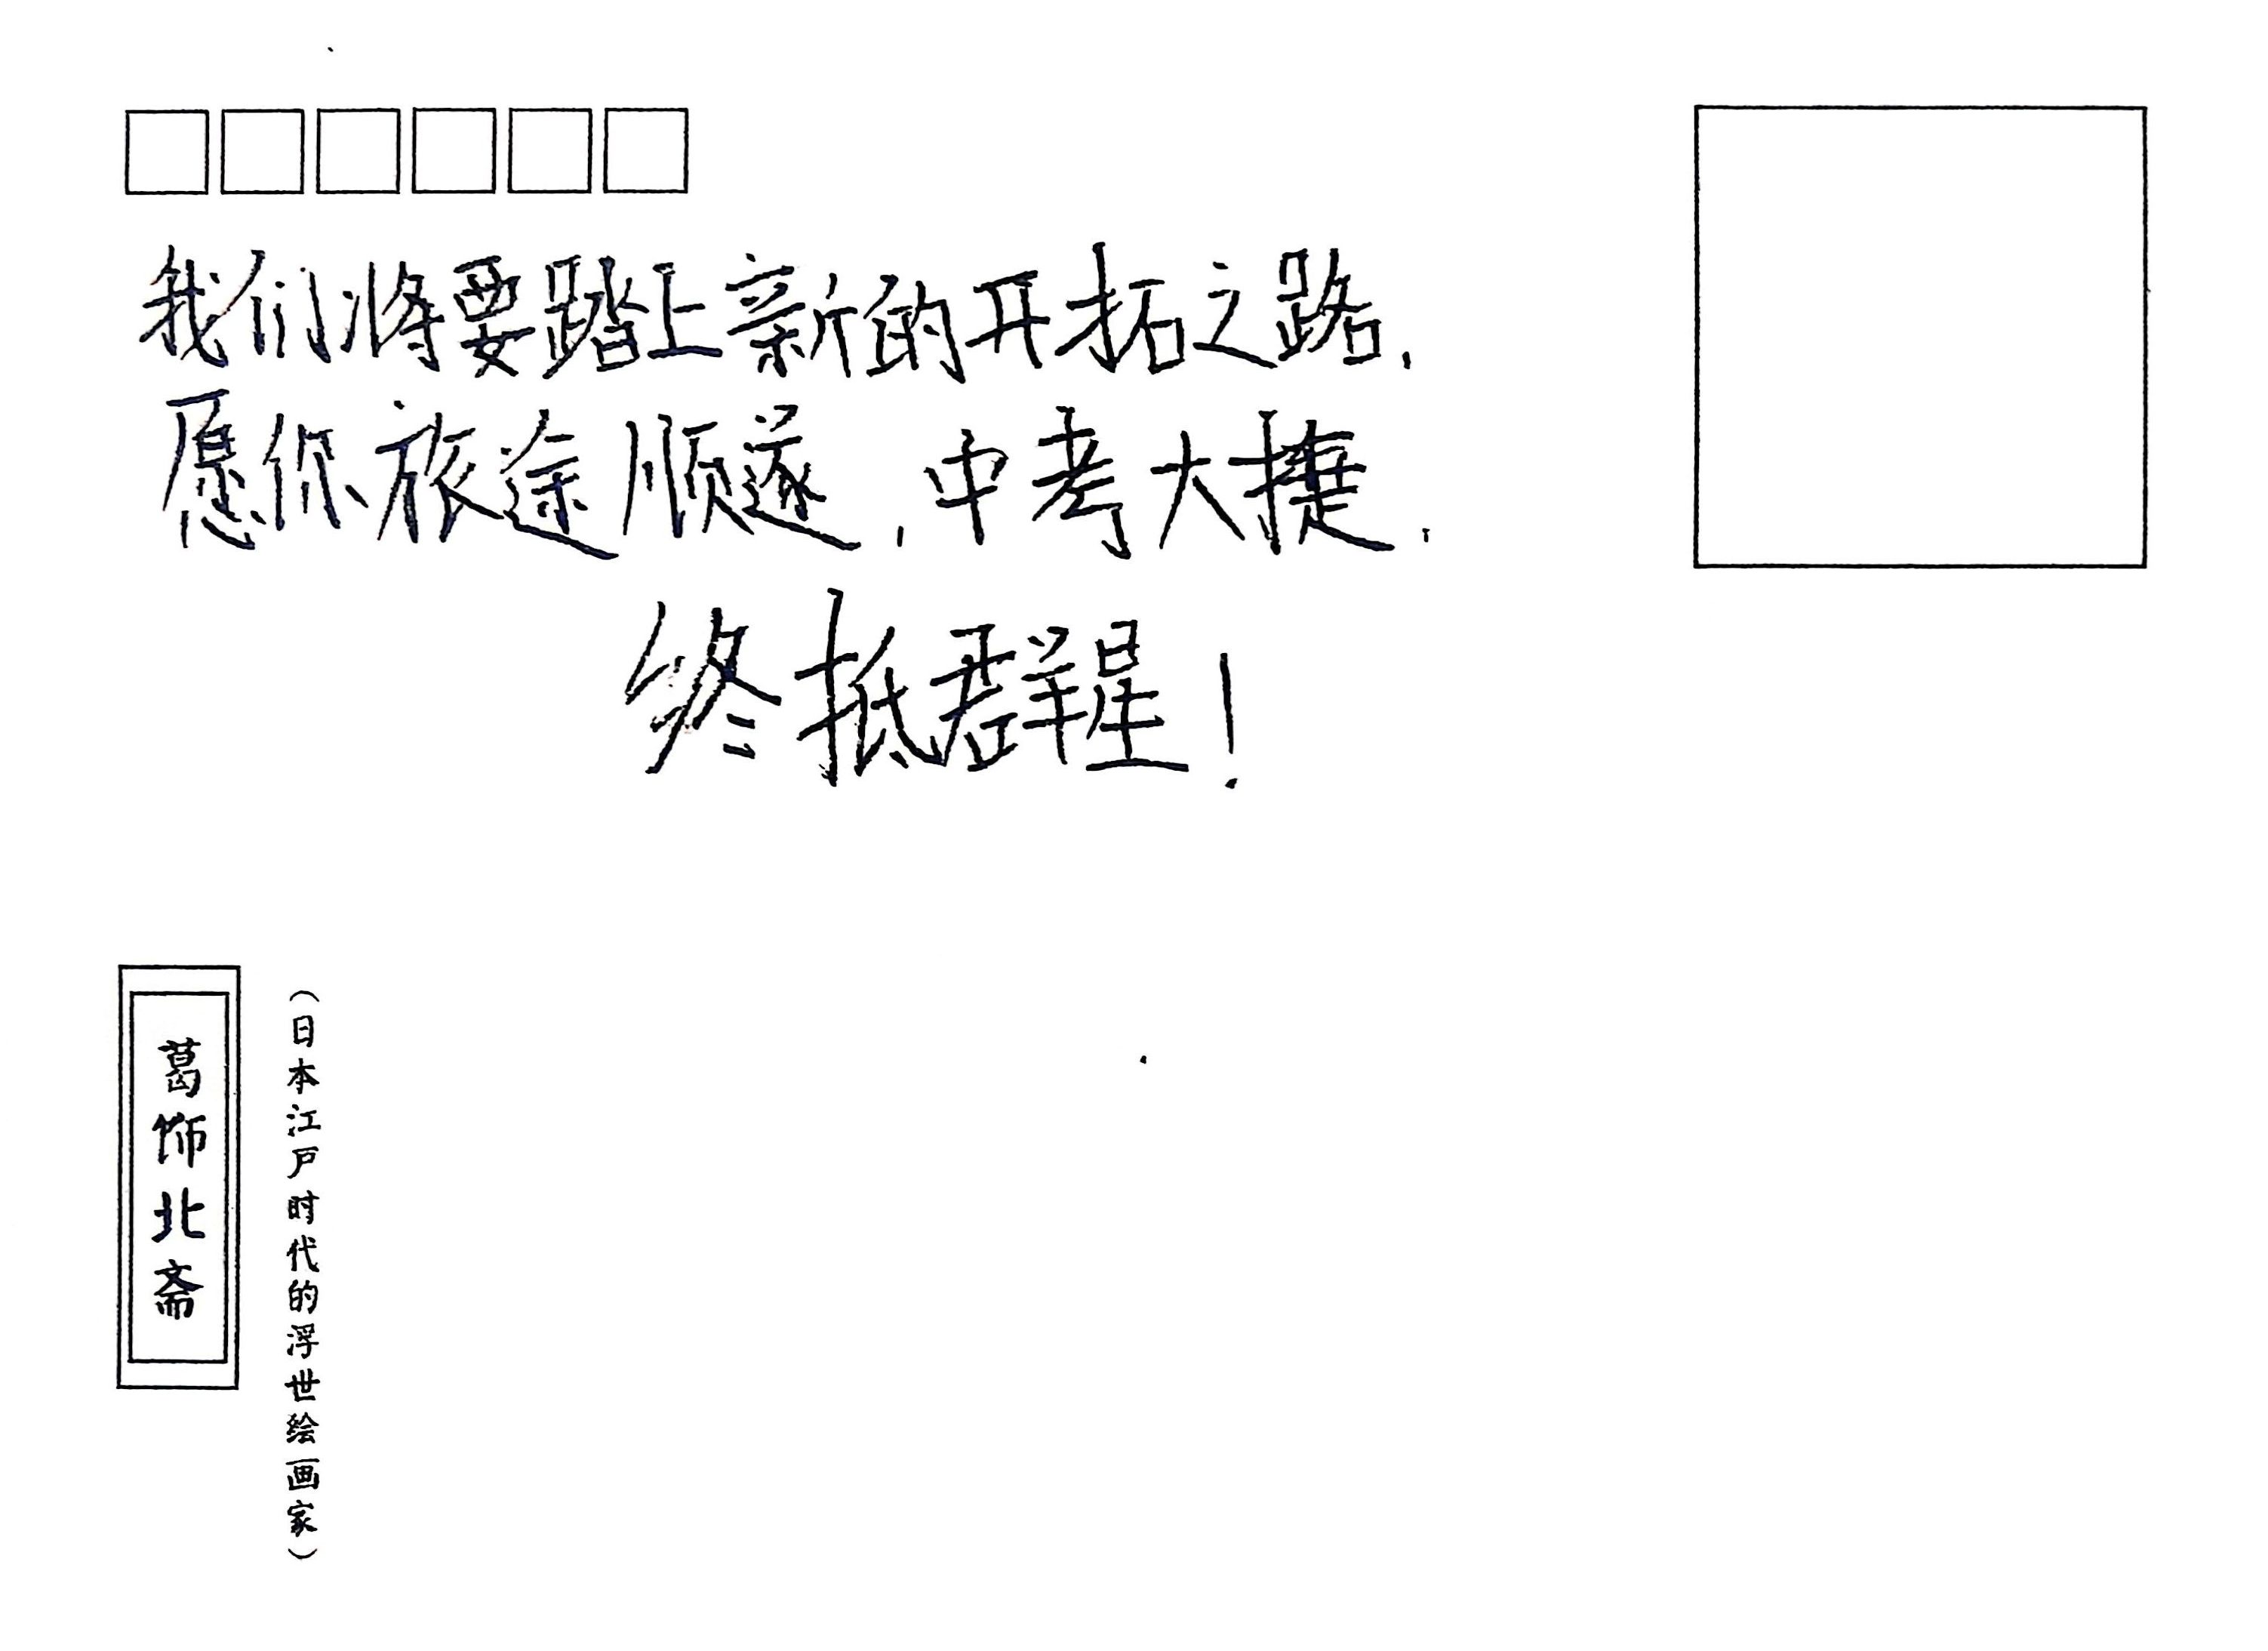 我们将要踏上新的开拓之路,
愿你旅途顺遂,中考大捷,
终抵群星!
葛饰北斋
(日本江户时代的浮世绘画家)